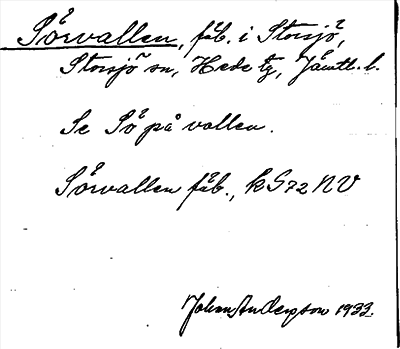 Sörvallen, fäb. i Storsjö,
Storsjö sn, Hede tg, Jämtl. l.
Se Sö på vallen.
Sörvallen fäb., k S72 NV
Johan Anderson 1933.